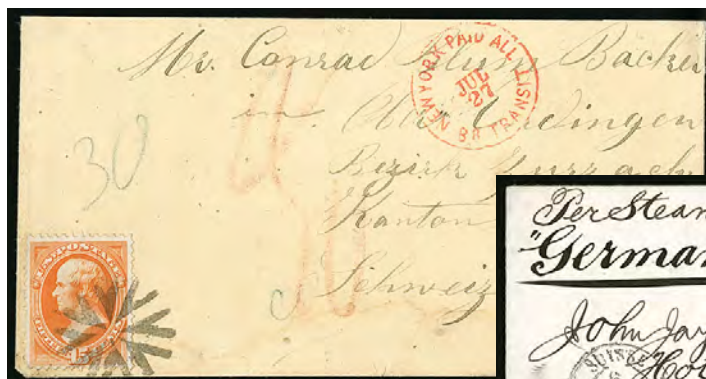 Mr. Conrad Blum Bäcker
NEW YORK PAID ALL BR TRANSIT
JUL
27
in Ober Endingen
30
Bezirk Zurzach
Kanton
Schweiz
U.S. POSTAGE
15
Per Steam
"German
John Jay
SUISSE